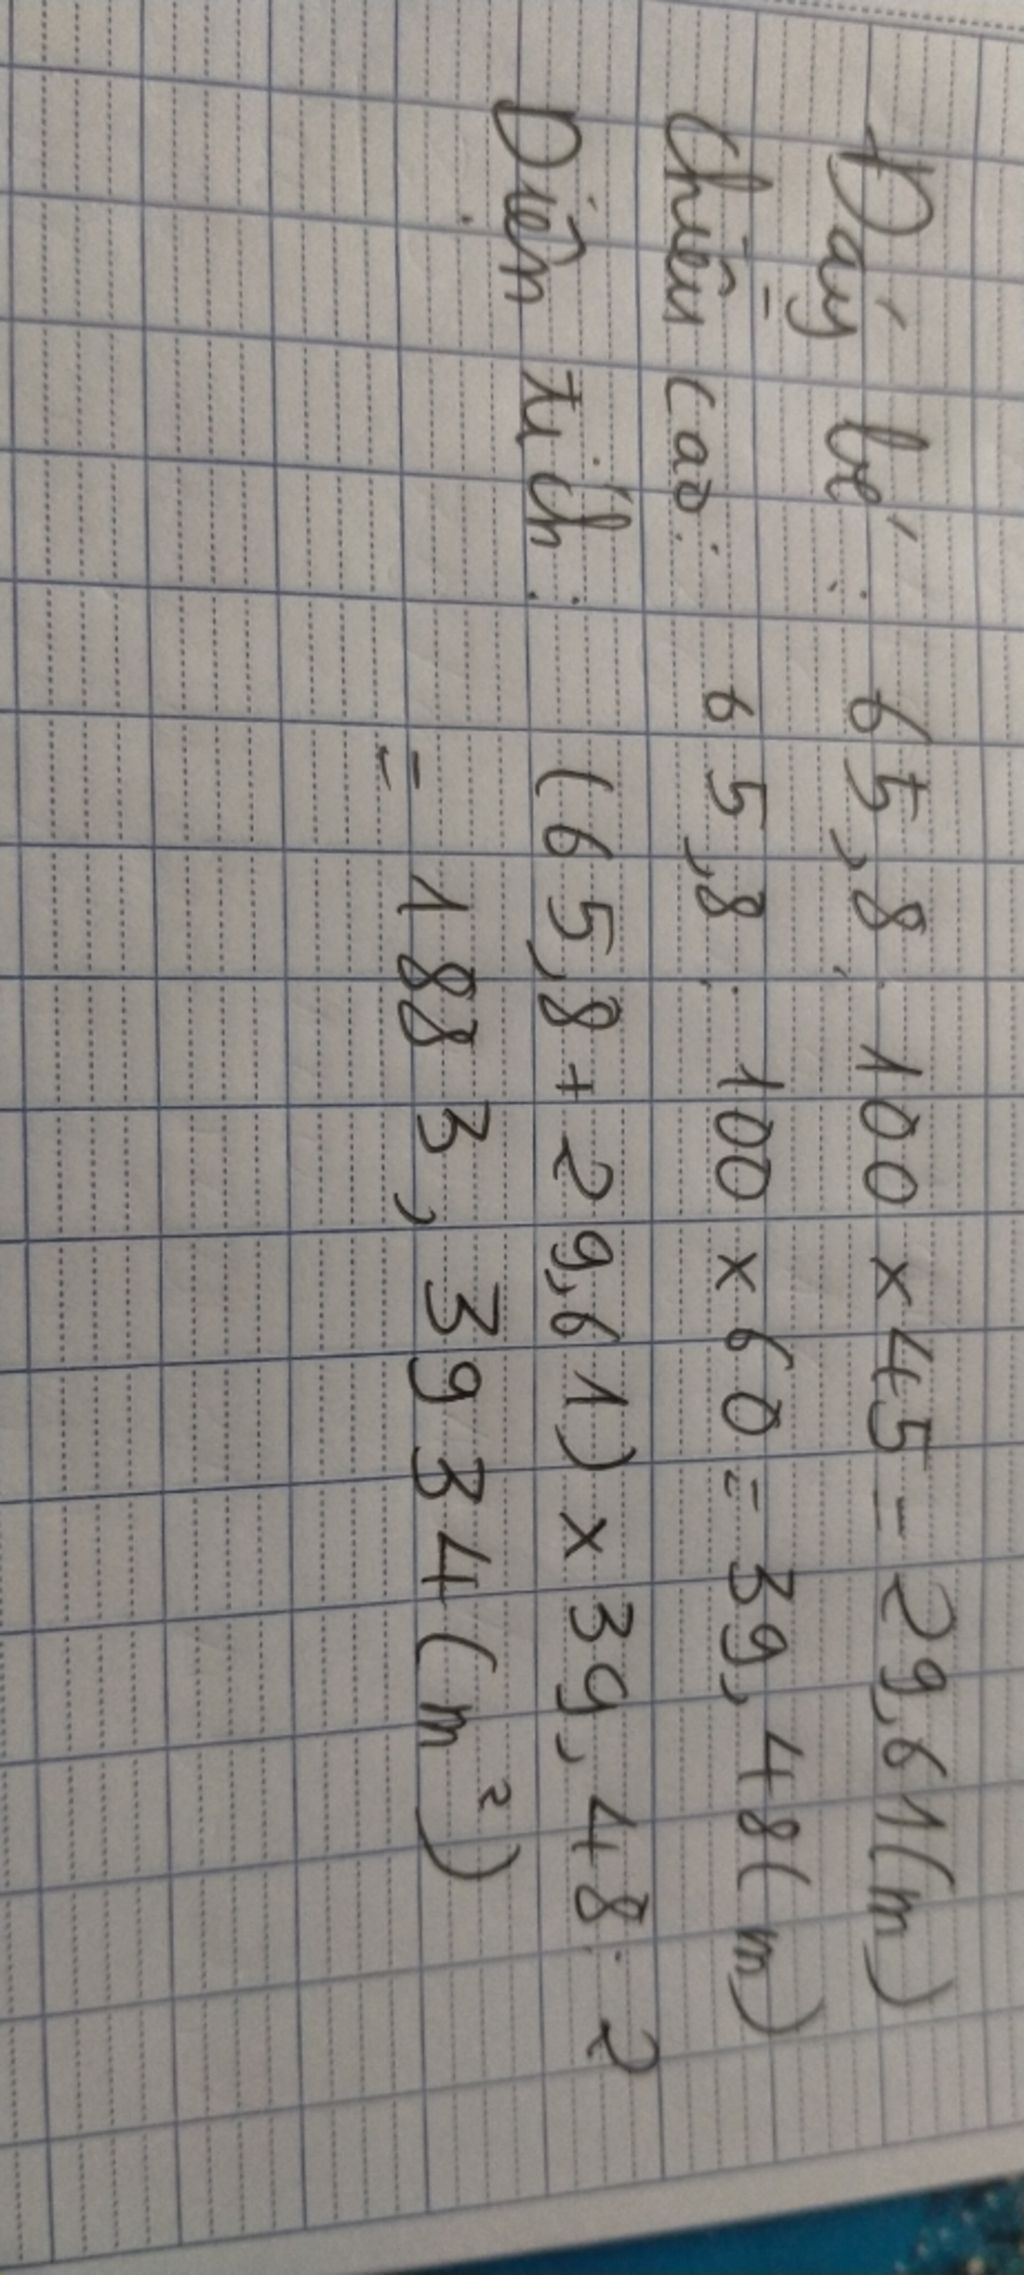 Đáy bé: 65,8 : 100 x 45 = 29,61(m)
Chiều cao: 65,8 : 100 x 60 = 39,48(m)
Diện tích: (65,8 + 29,61) x 39,48 : 2
= 1883,3934(m²)